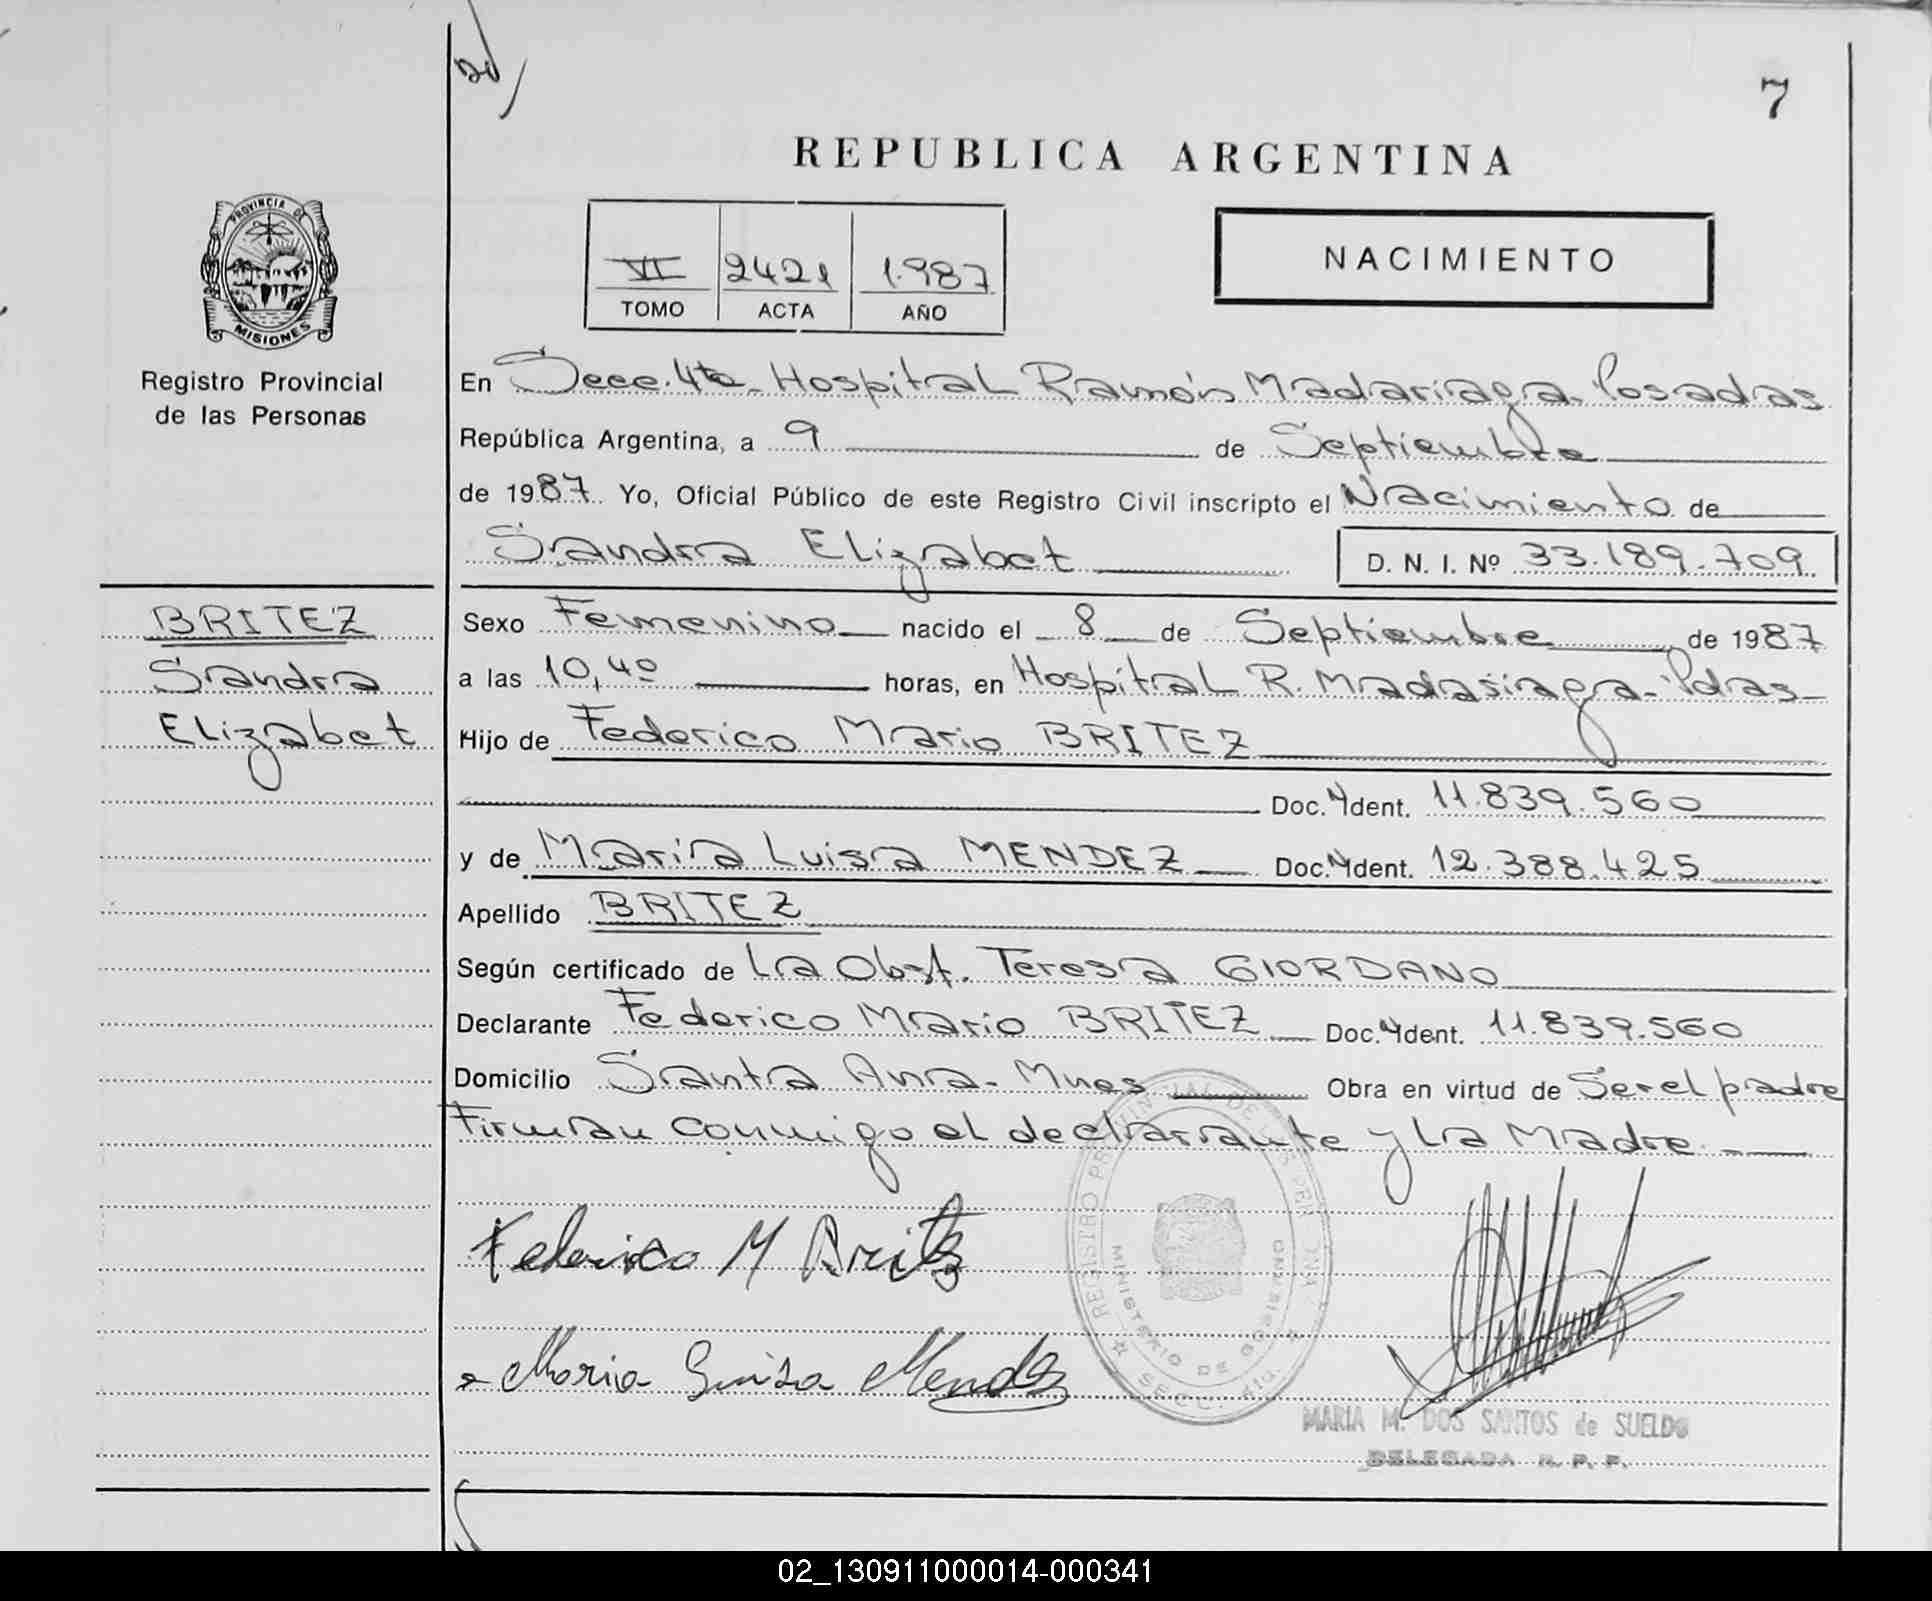 7
REPUBLICA ARGENTINA
PROVINCIA DE
MISIONES
Registro Provincial
de las Personas
VI 2421 1.987
TOMO ACTA AÑO
NACIMIENTO
En Secc. 4ta. Hospital Ramón Madariaga. Posadas
República Argentina, a 9 de Septiembre
de 1987. Yo, Oficial Público de este Registro Civil inscripto el Nacimiento de
Sandra Elizabet D. N. I. Nº 33.189.709
BRITEZ
Sandra
Elizabet
Sexo Femenino nacido el 8 de Septiembre de 1987
a las 10,40 horas, en Hospital R. Madariaga. Pdas
Hijo de Federico Mario BRITEZ
Doc. Ydent. 11.839.560
y de Maria Luisa MENDEZ Doc. Ydent. 12.388.425
Apellido BRITEZ
Según certificado de La Obst. Teresa GIORDANO
Declarante Federico Mario BRITEZ Doc. Ydent. 11.839.560
Domicilio Santa Ana - Mnes Obra en virtud de Ser el padre
Firman conmigo el declarante y la Madre.
Federico M Britez
Maria Luisa Mendez
REGISTRO PROVINCIAL DE LAS PERSONAS
MINISTERIO DE GOBIERNO
SECC. 4ta.
MARIA M. DOS SANTOS de SUELDO
DELEGADA R. P. P.
02_130911000014-000341